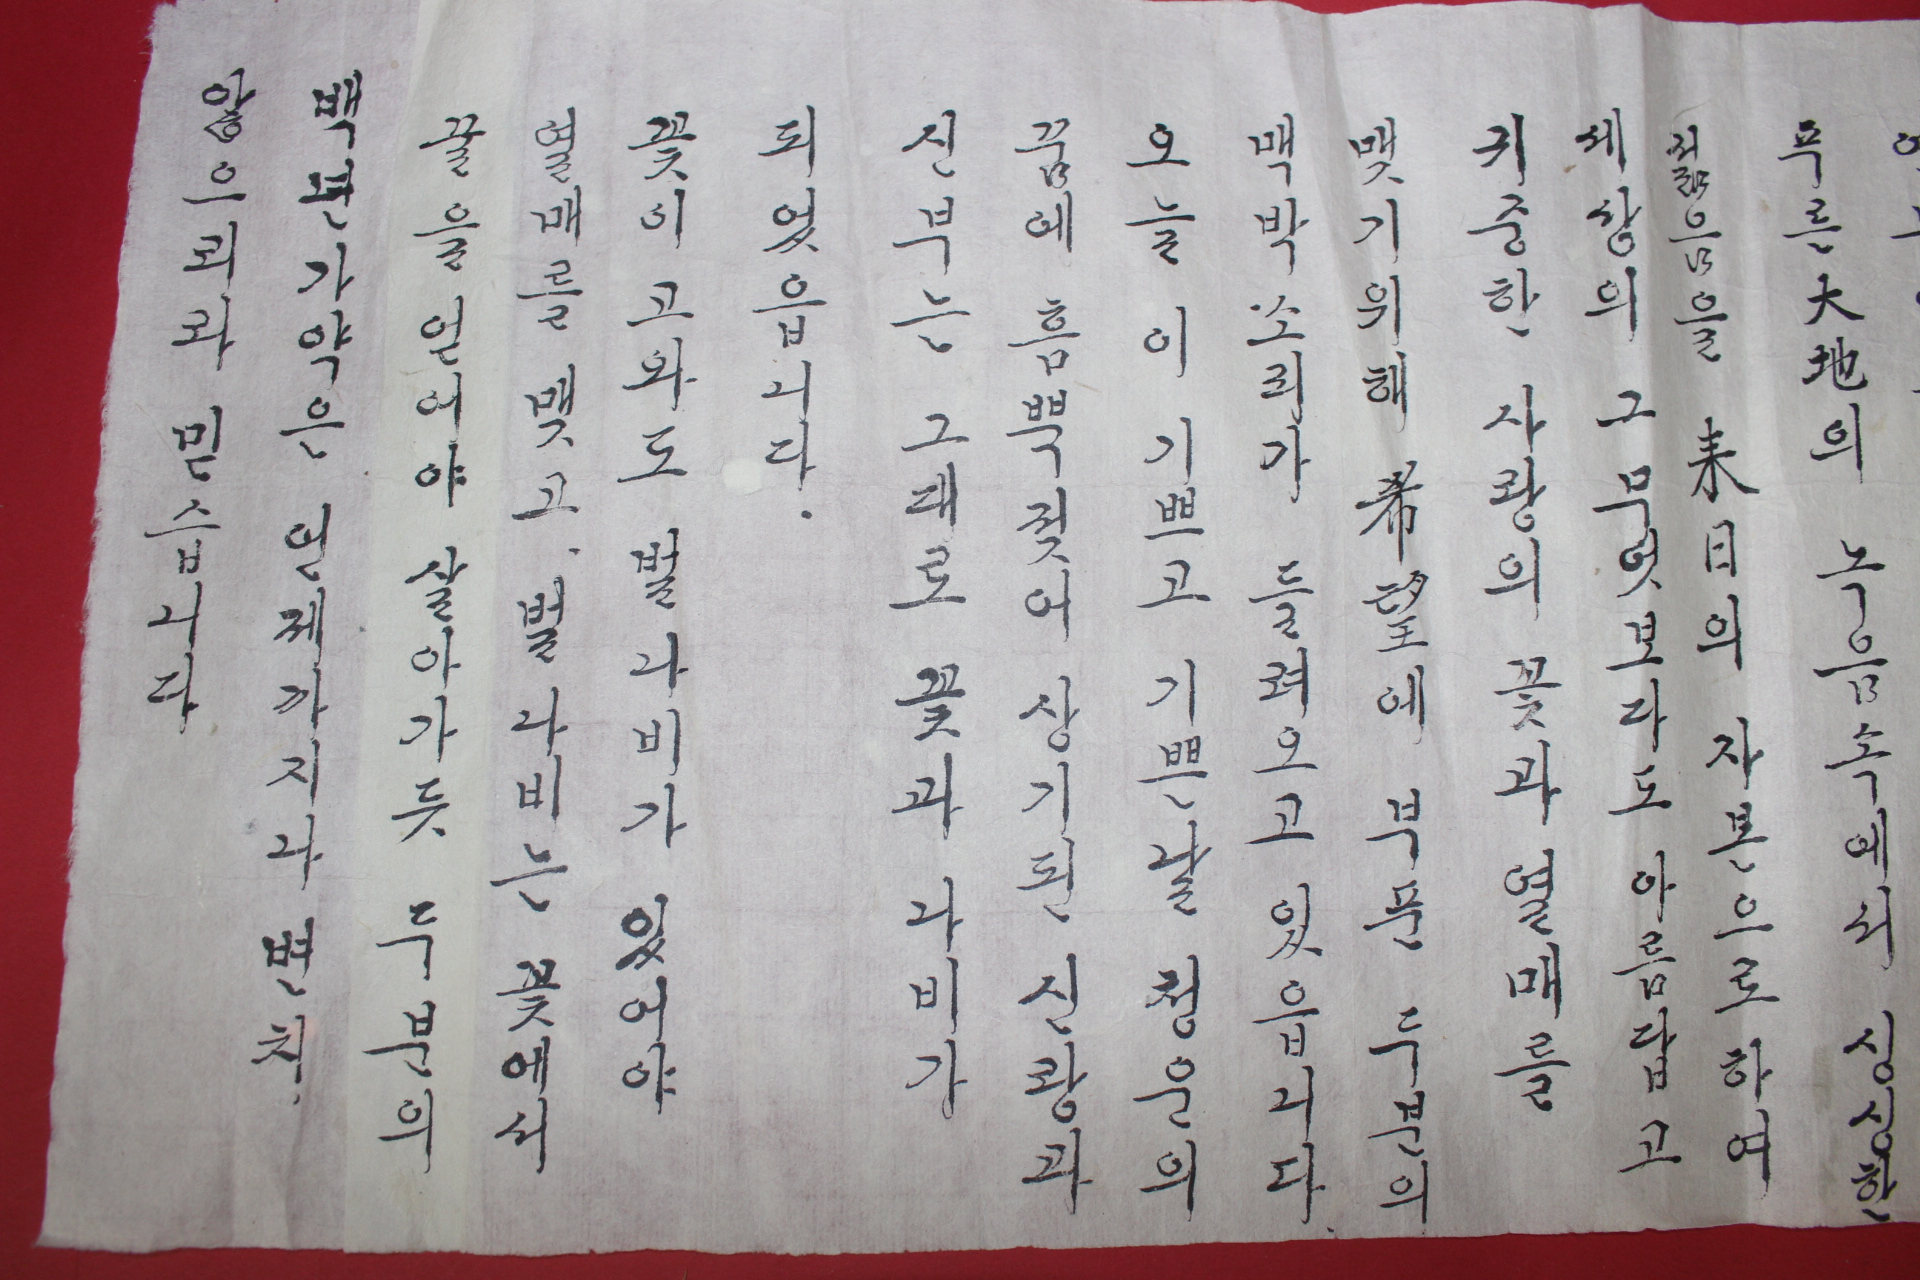 푸른 大地의 녹음속에서 싱싱한
젊음을 未日의 자본으로 하여
세상의 그 무엇보다도 아름답고
귀중한 사랑의 꽃과 열매를
맺기위해 希望에 부푼 두분의
맥박 소리가 들려오고 있읍니다
오늘 이 기쁘고 기쁜날 청운의
꿈에 흠뻑젖어 상기된 신랑과
신부는 그대로 꽃과 나비가
되었읍니다.
꽃이 고와도 벌나비가 있어야
열매를 맺고. 벌나비는 꽃에서
꿀을 얻어야 살아가듯 두분의
백년가약은 언제까지나 변치.
않으리라 믿습니다